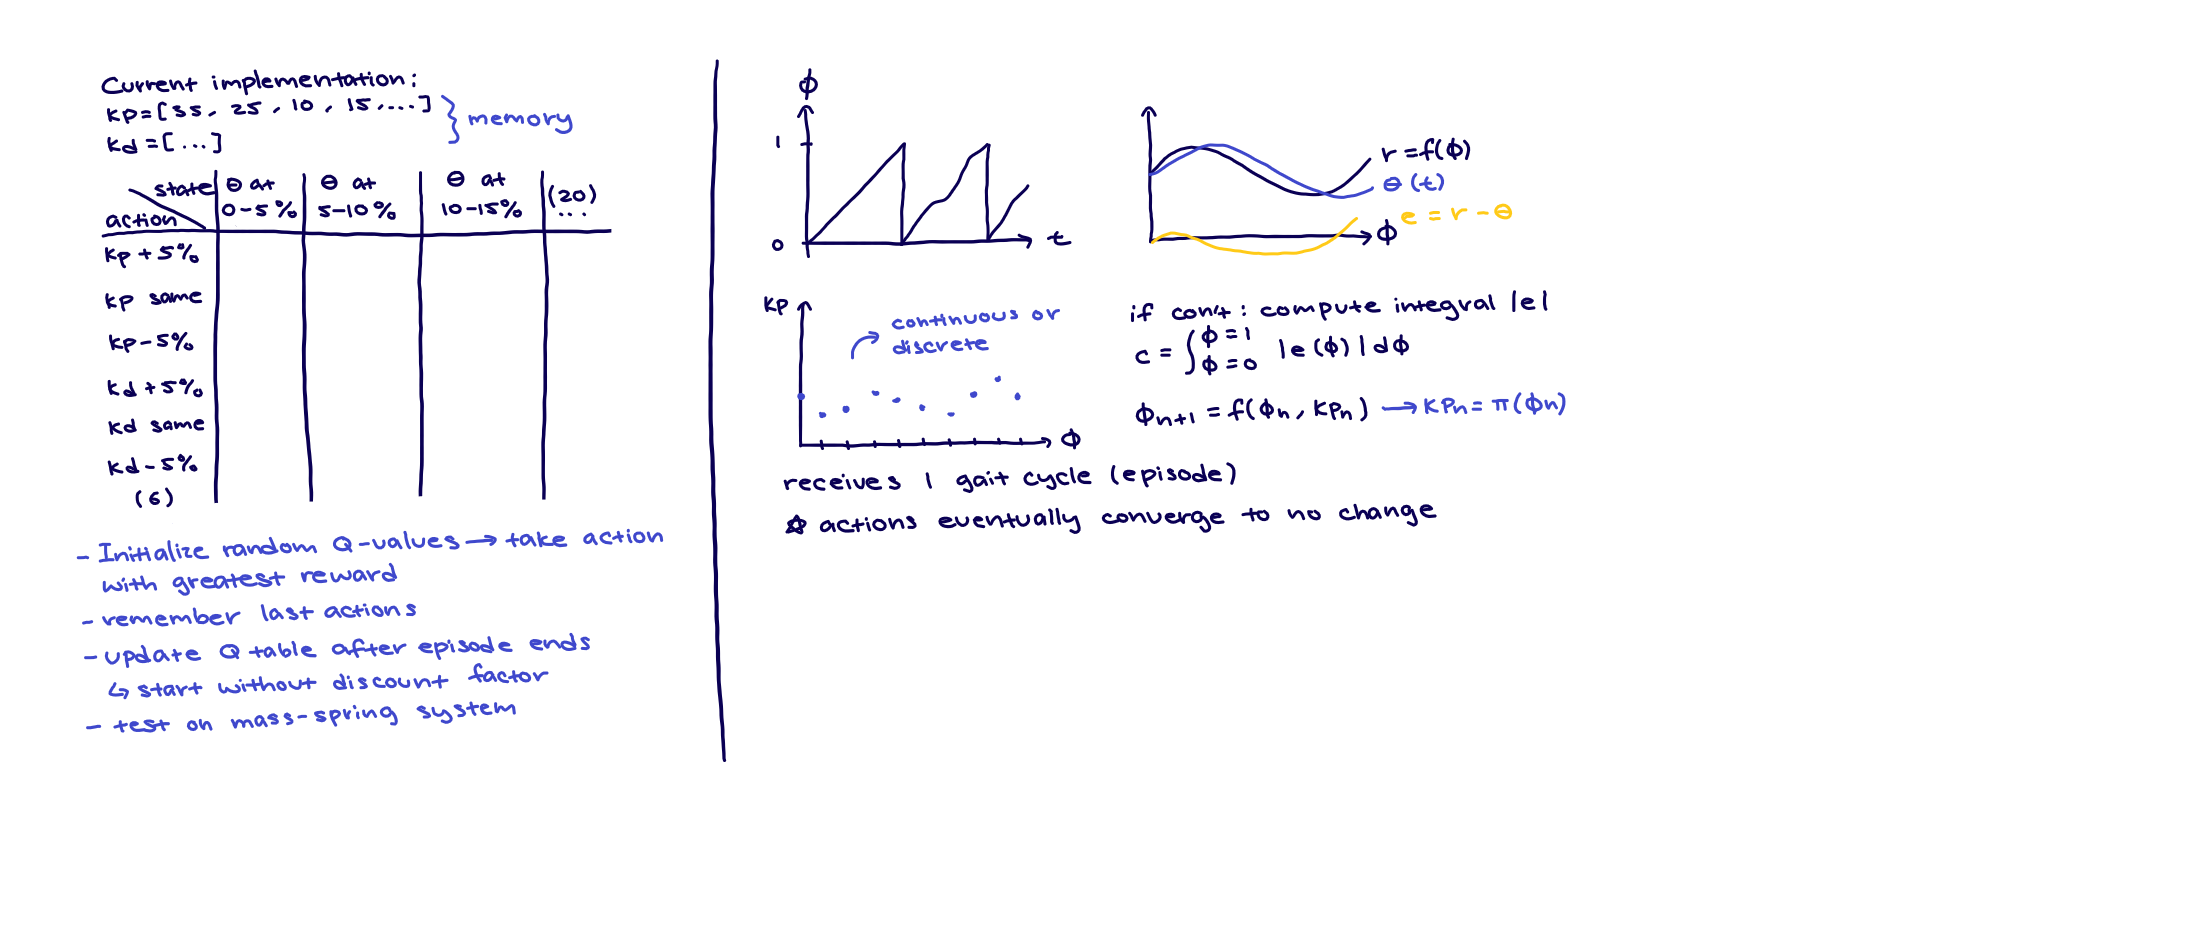 Current implementation:
kp=[35, 25, 10, 15,....]
kd=[...]
} memory
state
action
θ at 0-5%
θ at 5-10%
θ at 10-15%
(20) ...
kp+5%
kp same
kp-5%
kd+5%
kd same
kd-5%
(6)
- Initialize random Q-values → take action
with greatest reward
- remember last actions
- update Q table after episode ends
↳ start without discount factor
- test on mass-spring system
ϕ
1
0
t
r=f(ϕ)
θ(t)
e = r-θ
ϕ
kp
continuous or
discrete
ϕ
if con't: compute integral |e|
c = ∫ϕ=0^ϕ=1 |e(ϕ)|dϕ
ϕn+1 = f(ϕn, kpn) → kpn = π(ϕn)
receives 1 gait cycle (episode)
☆ actions eventually converge to no change